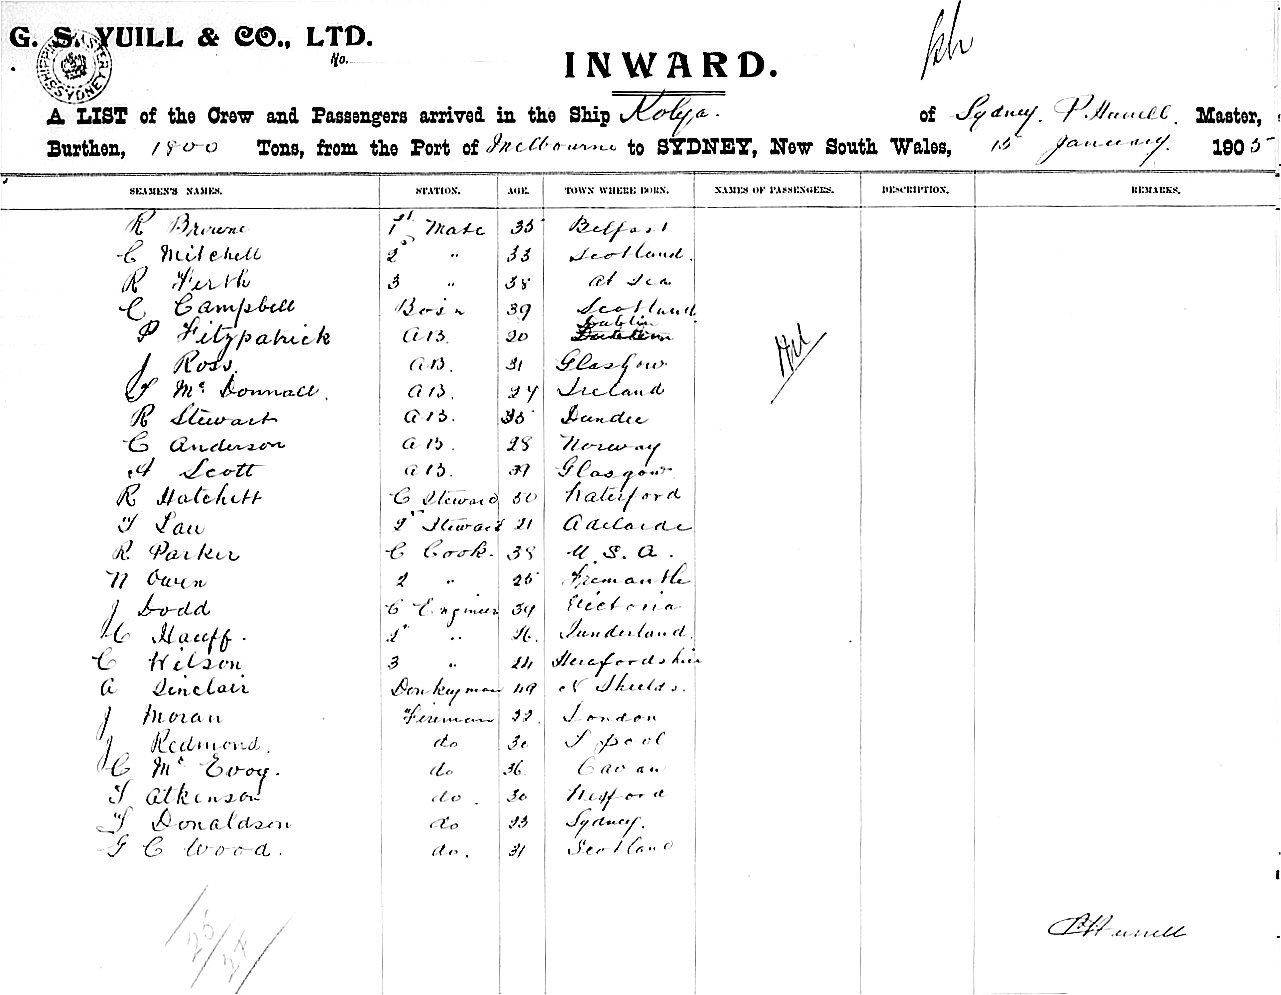 G. S. YUILL & CO., LTD.
SHIPPING MASTER SYDNEY
No.
INWARD.
A LIST of the Crew and Passengers arrived in the Ship Kolya. of Sydney. P. Hurrell. Master,
Burthen, 1800 Tons, from the Port of Melbourne to SYDNEY, New South Wales, 15 January. 1905
SEAMEN'S NAMES. STATION. AGE. TOWN WHERE BORN. NAMES OF PASSENGERS. DESCRIPTION. REMARKS.
R Browne 1st Mate 35 Belfast
C Mitchell 2" " 33 Scotland.
R Firth 3 " 38 at Sea
C Campbell Bos'n 39 Scotland
P Fitzpatrick AB. 20 Dublin
J Ross. AB. 31 Glasgow
Mc Donnall. AB. 27 Ireland
R Stewart AB. 35 Dundee
C Anderson AB. 28 Norway
A Scott AB. 39 Glasgow
R Hatchett C Steward 30 Waterford
T Lau 2" Steward 21 Adelaide
R Parker C Cook. 38 U.S.A.
N Owen 2 " 25 Fremantle
J Dodd C Engineer 39 Victoria
C Hauff. 2" " 26. Sunderland.
C Wilson 3 " 24 Herefordshire
A Sinclair Donkeyman 49 N Shields.
J Moran Fireman 22. London
J Redmond. do 30 L'pool
C Mc Evoy. do 36 Cavan
T Atkinson do. 30 Wexford
T Donaldson do 23 Sydney.
G C Wood. do. 31 Scotland
Nil
25/
27/
P Hurrell